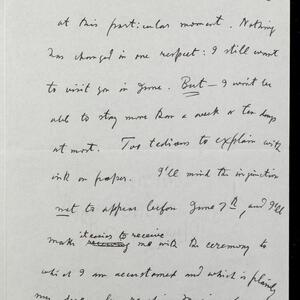 at this particular moment. Nothing
has changed in one respect: I still want
to visit you in June. But — I won't be
able to stay more than a week or ten days
at most. Too tedious to explain with
ink on paper. I'll mind the injunction
not to appear before June 7th, and I'll
it easier to receive
make me with the ceremony to
which I am accustomed and which is plainly
my due